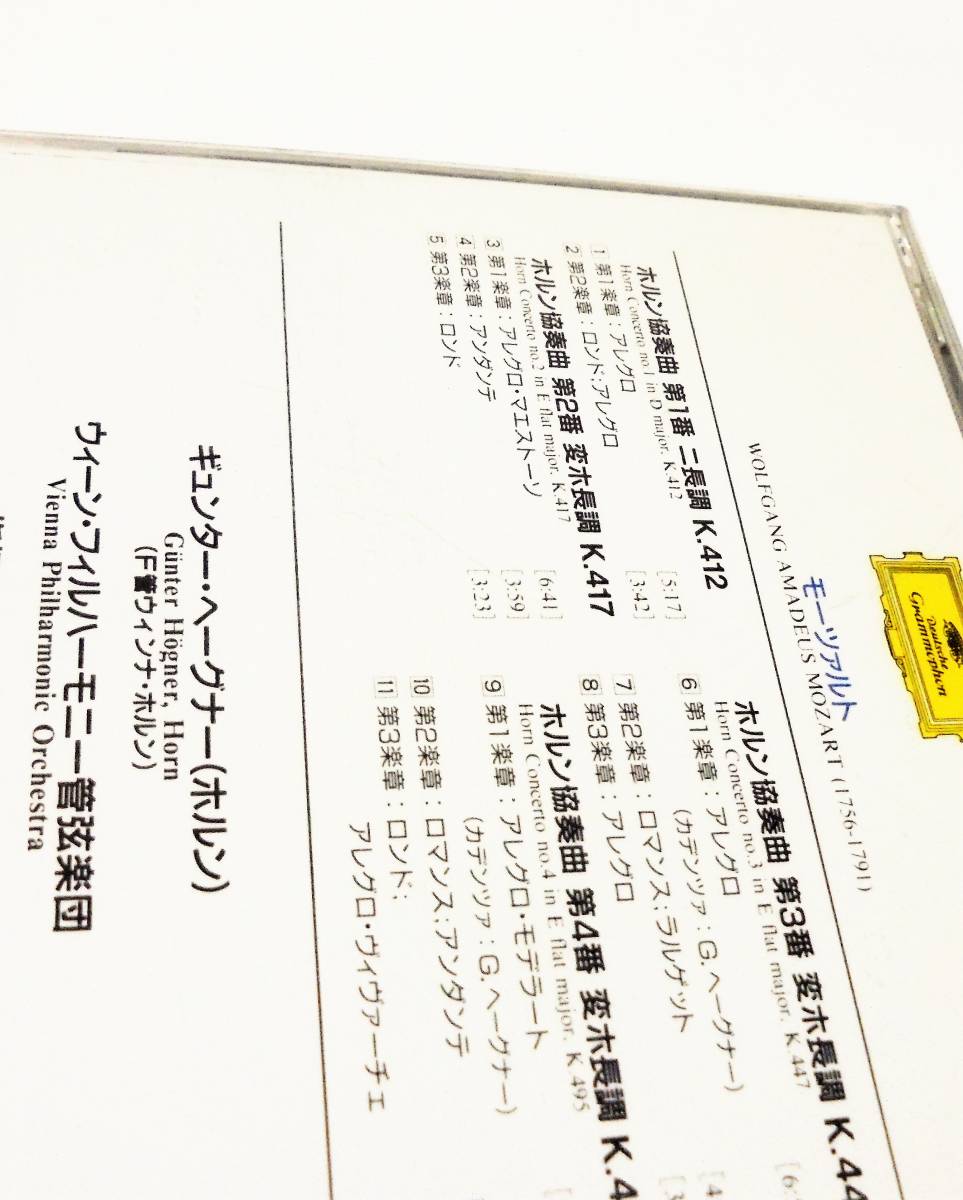 Deutsche
Grammophon
モーツァルト
WOLFGANG AMADEUS MOZART (1756-1791)
ホルン協奏曲 第1番 ニ長調 K.412
Horn Concerto no.1 in D major, K.412
1 第1楽章：アレグロ [5:17]
2 第2楽章：ロンド：アレグロ [3:42]
ホルン協奏曲 第2番 変ホ長調 K.417
Horn Concerto no.2 in E flat major, K.417
3 第1楽章：アレグロ・マエストーソ [6:41]
4 第2楽章：アンダンテ [3:59]
5 第3楽章：ロンド [3:23]
ホルン協奏曲 第3番 変ホ長調 K.44
Horn Concerto no.3 in E flat major, K.447
6 第1楽章：アレグロ [6:
(カデンツァ：G.ヘーグナー)
7 第2楽章：ロマンス：ラルゲット [4
8 第3楽章：アレグロ [3
ホルン協奏曲 第4番 変ホ長調 K.4
Horn Concerto no.4 in E flat major, K.495
9 第1楽章：アレグロ・モデラート
(カデンツァ：G.ヘーグナー)
10 第2楽章：ロマンス：アンダンテ
11 第3楽章：ロンド：
アレグロ・ヴィヴァーチェ
ギュンター・ヘーグナー(ホルン)
Günter Högner, Horn
(F管ウィンナ・ホルン)
ウィーン・フィルハーモニー管弦楽団
Vienna Philharmonic Orchestra